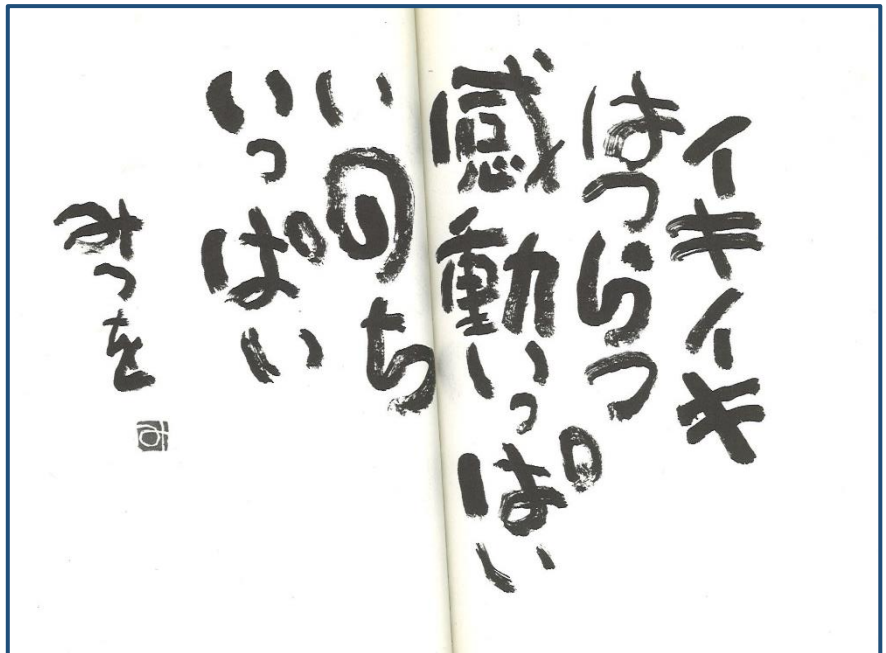 イキイキ
はつらつ
感動いっぱい
いのち
いっぱい
みつを
み